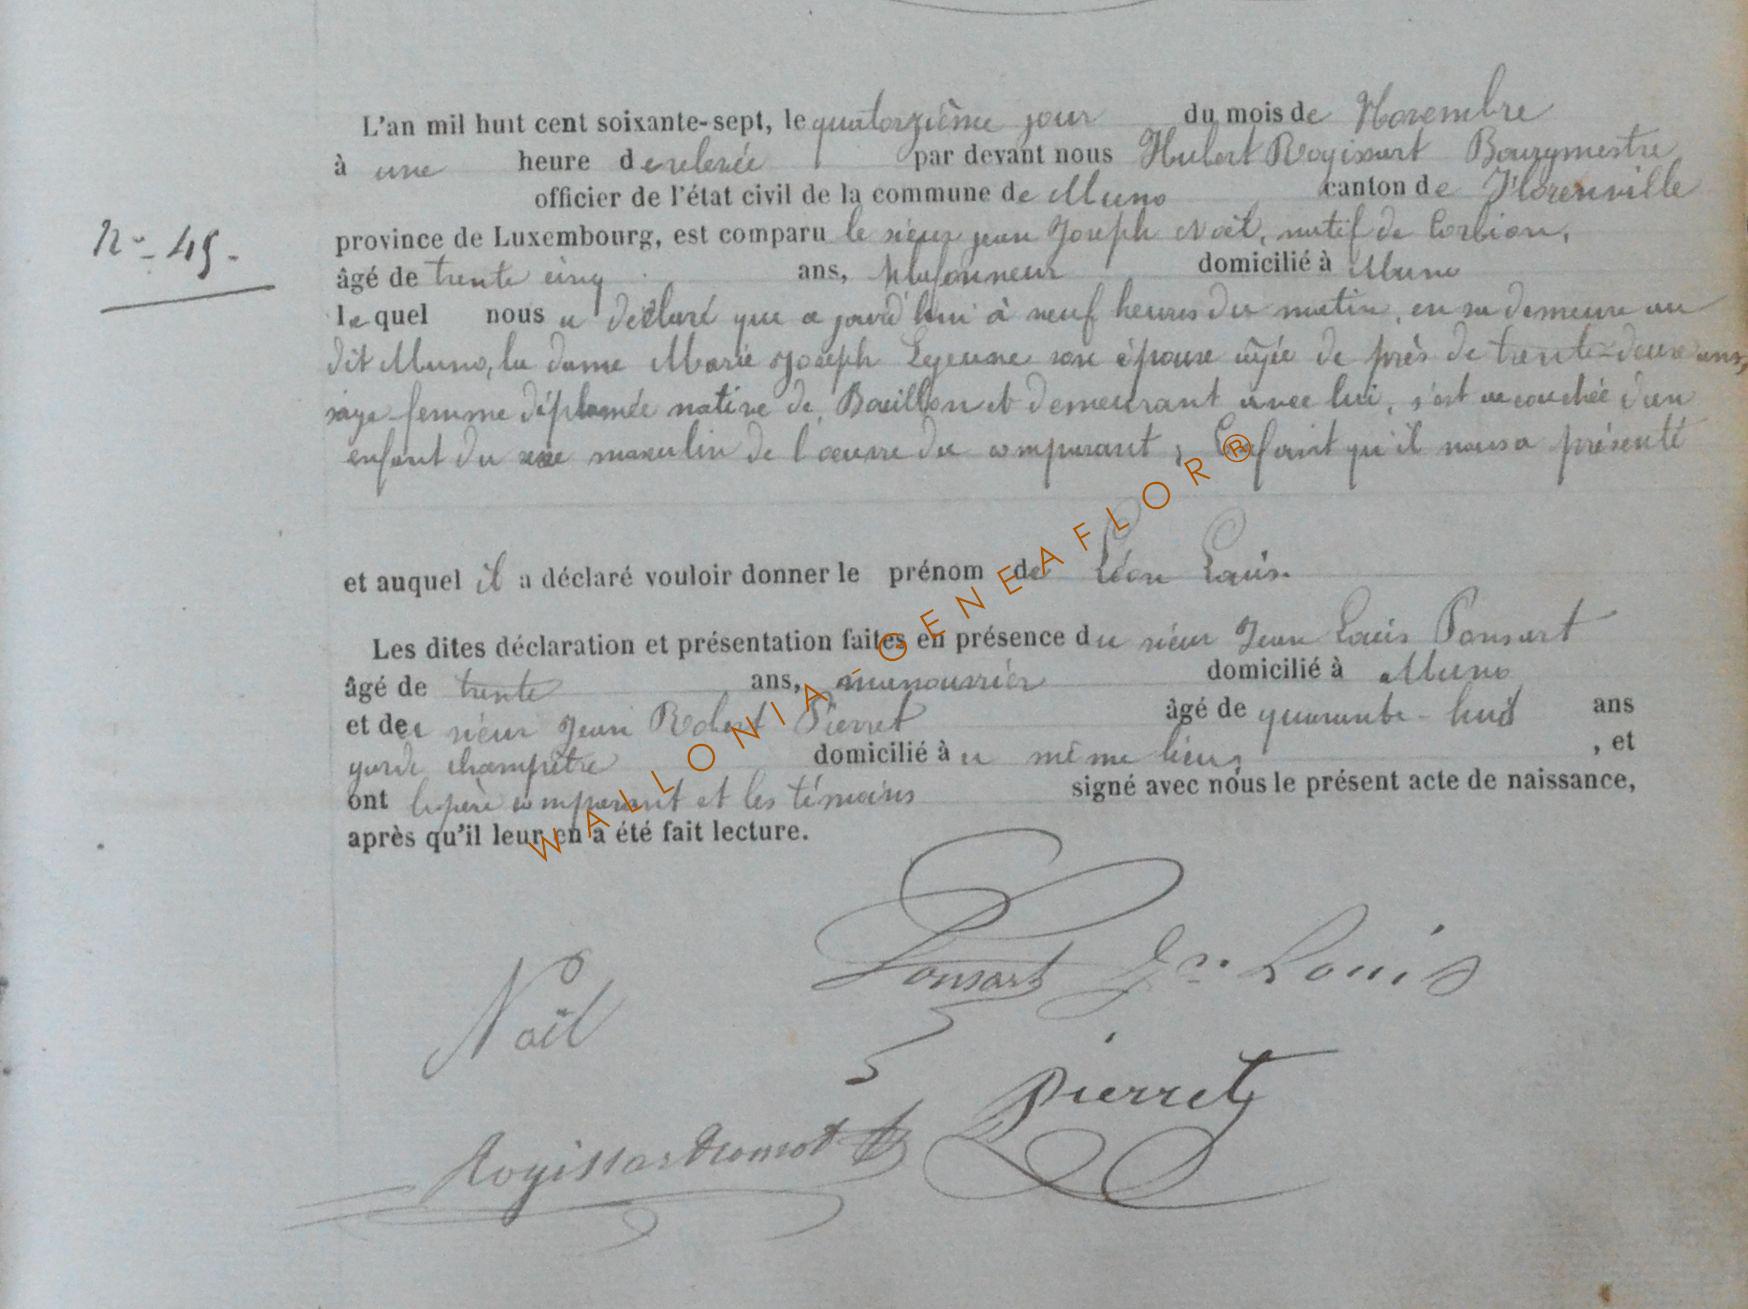 L'an mil huit cent soixante-sept, le quatorzième jour du mois de Novembre
à une heure de relevée par devant nous Hubert Rogissart Bourgmestre
officier de l'état civil de la commune de Muno canton de Florenville
N° 45.
province de Luxembourg, est comparu le sieur jean Joseph Noël, natif de Corbion,
âgé de trente cinq ans, plafonneur domicilié à Muno
lequel nous a déclaré que ajourd'hui à neuf heures du matin, en sa demeure au
dit Muno, la dame Marie Joseph Lejeune son épouse âgée de près de trente-deux ans,
sage-femme diplomée native de Bouillon et demeurant avec lui, s'est accouchée d'un
enfant du sexe masculin de l'œuvre du comparant, Enfant qu'il nous a présenté
et auquel il a déclaré vouloir donner le prénom de Léon Louis.
Les dites déclaration et présentation faites en présence du sieur Jean Louis Ponsart
âgé de trente ans, manouvrier domicilié à Muno
et de sieur Jean Robert Pierret âgé de quarante-huit ans
garde champêtre domicilié à u même lieu, , et
ont le père comparant et les témoins signé avec nous le présent acte de naissance,
après qu'il leur en a été fait lecture.
WALLONIA-GENEAFLOR®
Ponsart Jn Louis
Noël
Pierret